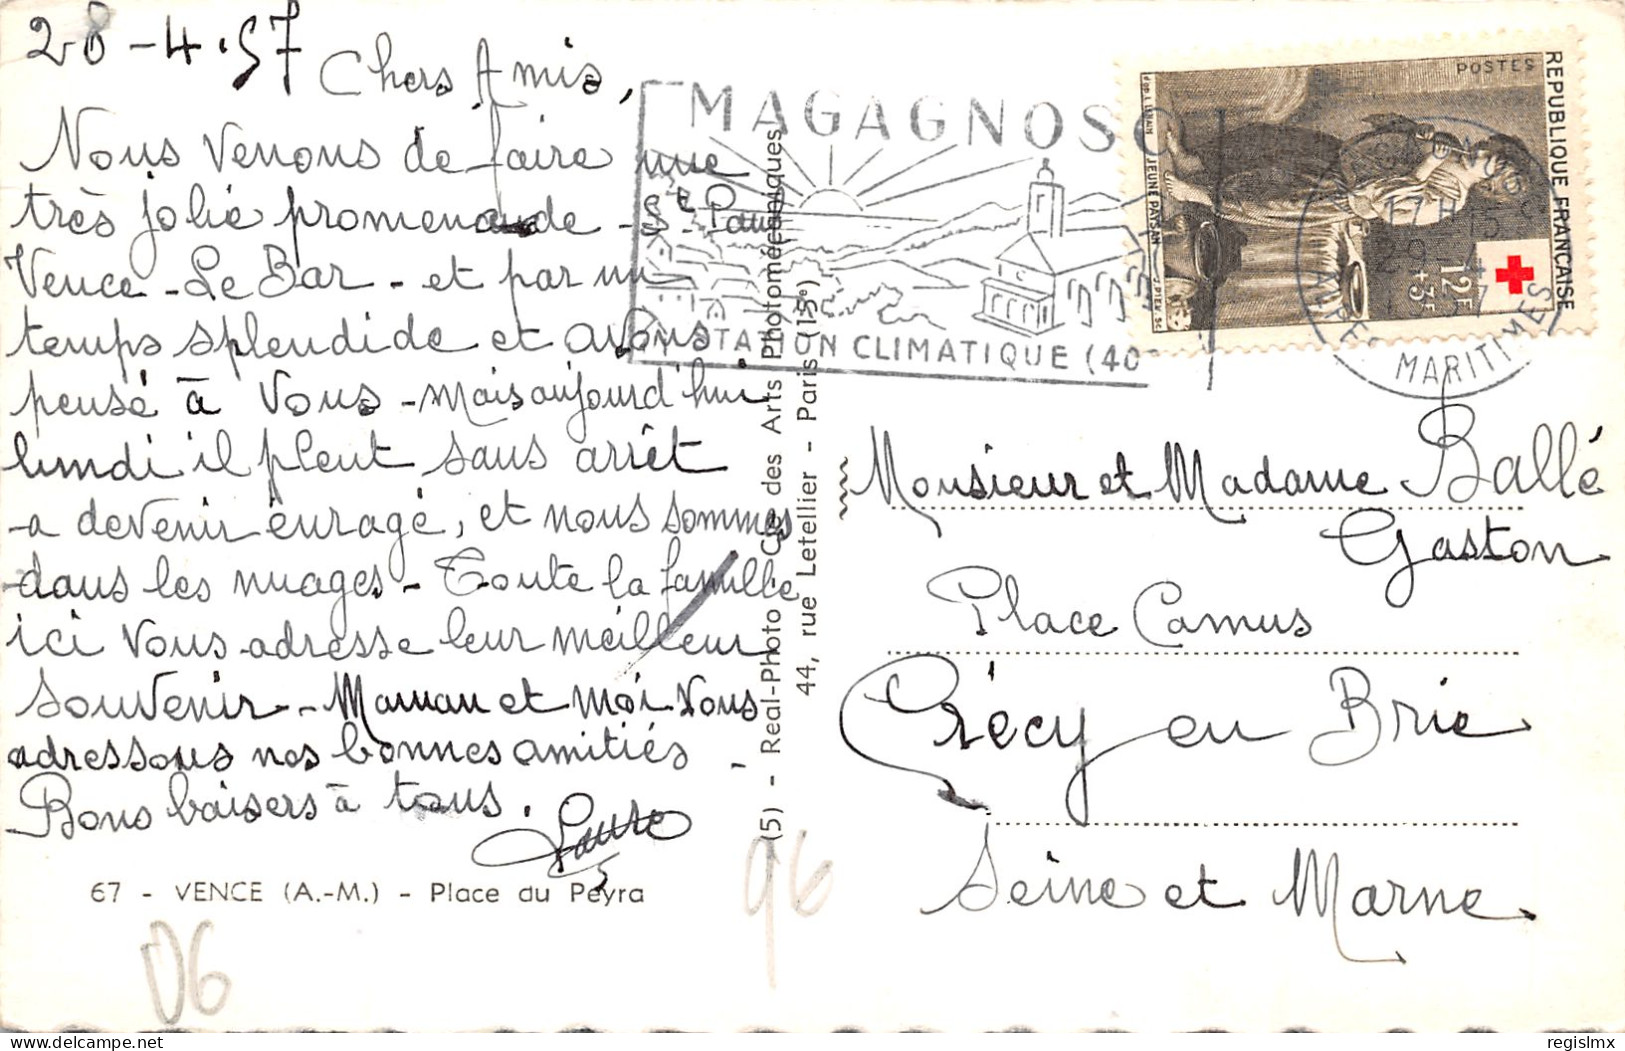 28-4.57
Chers Amis,
Nous venons de faire une
très jolie promenade - St Paul
Vence - Le Bar - et par un
temps splendide et avons
pensé à vous - mais aujourd'hui
lundi il pleut sans arrêt
-a devenir enragé, et nous sommes
dans les nuages - Toute la famille
ici vous adresse leur meilleur
souvenir - Maman et moi vous
adressons nos bonnes amitiés -
Bons baisers à tous.
67 - VENCE (A.-M.) - Place du Peyra
06
96
(5) - Real-Photo Cie des Arts Photomécaniques
44, rue Letellier - Paris (15e)
MAGAGNOSC
STATION CLIMATIQUE (40
17H15
29-4
ALPES MARITIMES
POSTES
REPUBLIQUE FRANCAISE
12F
+3F
LE NAIN JEUNE PAYSAN
Monsieur et Madame Ballé
Gaston
Place Camus
Crécy en Brie
Seine et Marne
regislmx